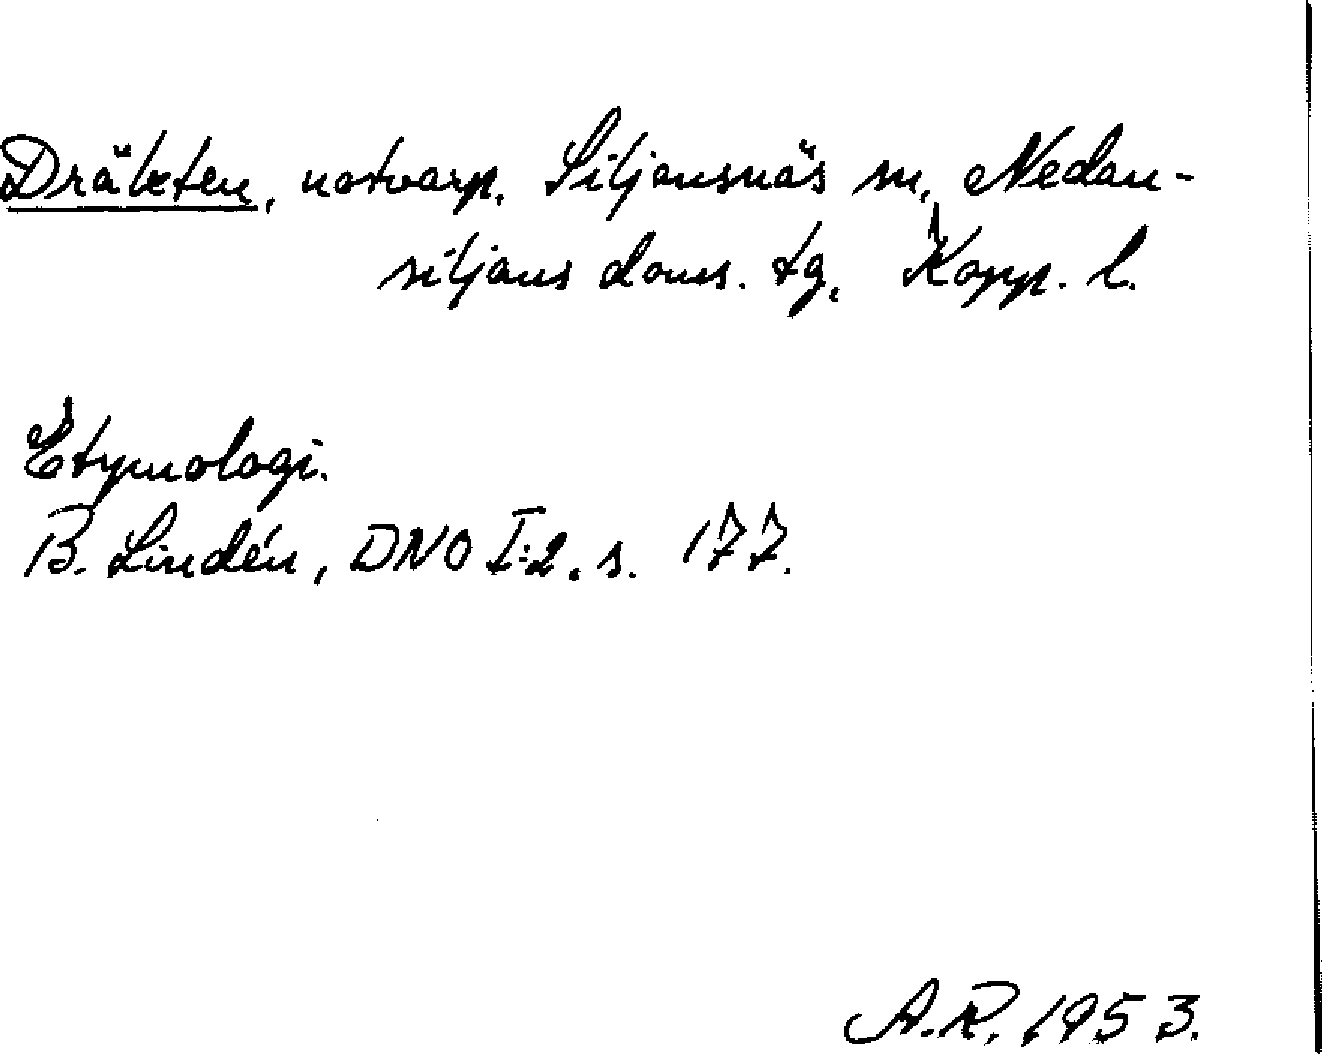 Dräkten, notvarp. Siljansnäs sn, Nedan-
siljans doms. tg, Kopp. l.
Etymologi.
B. Lindén, DNO I:2. s. 177.
A.R. 1953.